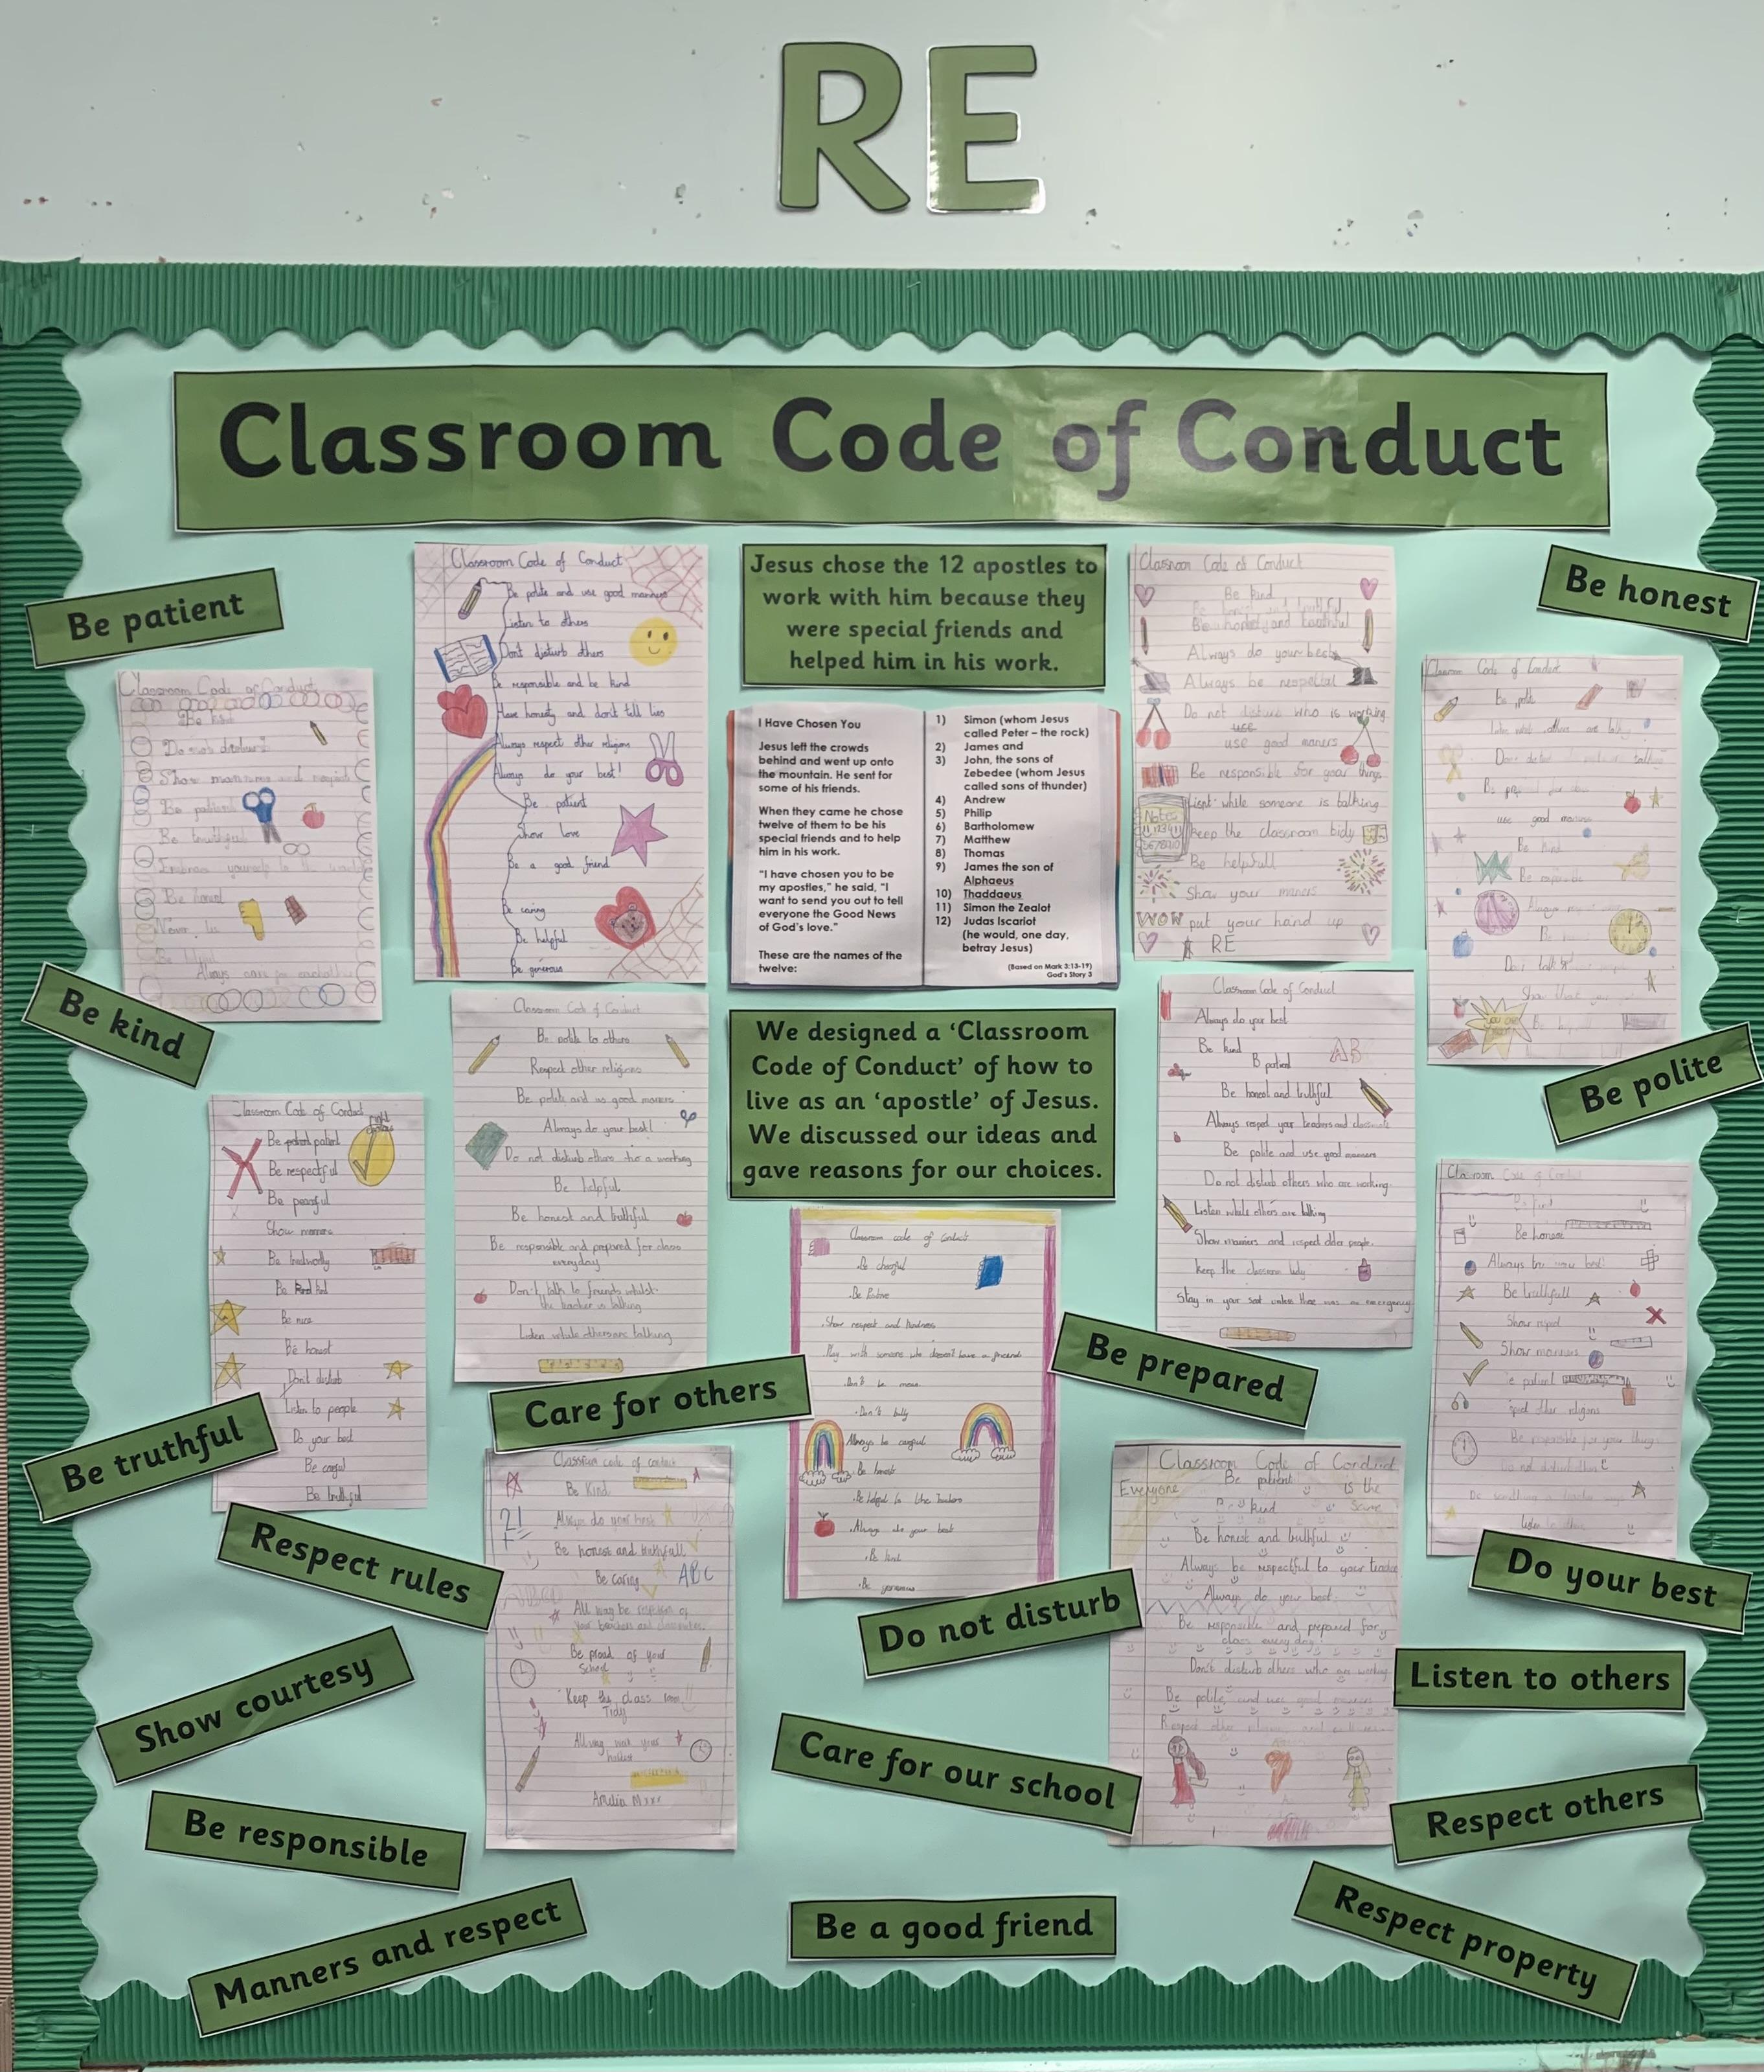 RE
Classroom Code of Conduct
Be patient
Be honest
Classroom Code of Conduct
Be polite and use good manners
Listen to others
Don't disturb others
Be responsible and be kind
Have honesty and don't tell lies
Always respect other religions
Always do your best!
Be patient
Show love
Be a good friend
Be caring
Be helpful
Be generous
Jesus chose the 12 apostles to
work with him because they
were special friends and
helped him in his work.
I Have Chosen You
Jesus left the crowds
behind and went up onto
the mountain. He sent for
some of his friends.
When they came he chose
twelve of them to be his
special friends and to help
him in his work.
"I have chosen you to be
my apostles," he said, "I
want to send you out to tell
everyone the Good News
of God's love."
These are the names of the
twelve:
1) Simon (whom Jesus
called Peter – the rock)
2) James and
3) John, the sons of
Zebedee (whom Jesus
called sons of thunder)
4) Andrew
5) Philip
6) Bartholomew
7) Matthew
8) Thomas
9) James the son of
Alphaeus
10) Thaddaeus
11) Simon the Zealot
12) Judas Iscariot
(he would, one day,
betray Jesus)
(Based on Mark 3:13-19)
God's Story 3
Classroom Code of Conduct
Be kind
Always do your best
Always be
Do not who is working
use
use good maners
Be responsible for your things
while someone is talking
Notes
keep the classroom tidy
Be helpfull
Show your maners
WOW put your hand up
RE
Classroom Code of Conduct
Be kind
Show manners and
Be patient
Be truthful
Be honest
Always care for
Classroom Code of Conduct
Be polite
use good manners
Be kind
Be responsible
Be kind
Be polite
We designed a 'Classroom
Code of Conduct' of how to
live as an 'apostle' of Jesus.
We discussed our ideas and
gave reasons for our choices.
Classroom Code of Conduct
Be polite to others
Respect other religions
Be polite and us good maners
Always do your best!
Do not disturb others who a working
Be helpful
Be honest and truthful
Be responsible and prepared for class
everyday
Don't talk to friends whilst
the teacher is talking
Listen while others are talking
Classroom Code of Conduct
Always do your best
Be kind
B patient
ABC
Be honest and truthful
Always respect your teachers and classmates
Be polite and use good manners
Do not disturb others who are working.
Listen while others are talking
Show manners and respect older people.
keep the classroom tidy
Stay in your seat unless there was an emergency
Classroom Code of Conduct
Be patient
Be respectful
Be peaceful
Show manners
Be trustworthy
Be kind
Be nice
Be honest
Don't disturb
Listen to people
Do your best
Be careful
Be truthful
Classroom code of conduct
Be cheerful
Be Positive
Show respect and kindness
Play with someone who doesn't have a friend
Don't be mean
Don't bully
Always be careful
Be honest
Be helpful to the teachers
Always do your best
Be kind
Be generous
Classroom Code of Conduct
Be kind
Be honest
Always try your best
Be truthfull
Show respect
Show manners
patient
other religions
Be responsible for your things
Do not disturb others
Be truthful
Care for others
Be prepared
Classroom code of conduct
Be Kind
21
Always do your best
Be honest and truthfull
Be caring
ABC
All way be respectful of
your teachers and classmates.
Be proud of your
School
Keep the class room
Tidy
Allway work your
hardest
Amelia M xxx
Classroom Code of Conduct
Be patient
Everyone is the
Same
Be kind
Be honest and truthful
Always be respectful to your teacher
Always do your best
Be responsible and prepared for
class every day
Don't disturb others who are working
Be polite and use good manners
Respect other
Respect rules
Do not disturb
Do your best
Listen to others
Show courtesy
Care for our school
Respect others
Be responsible
Manners and respect
Be a good friend
Respect property